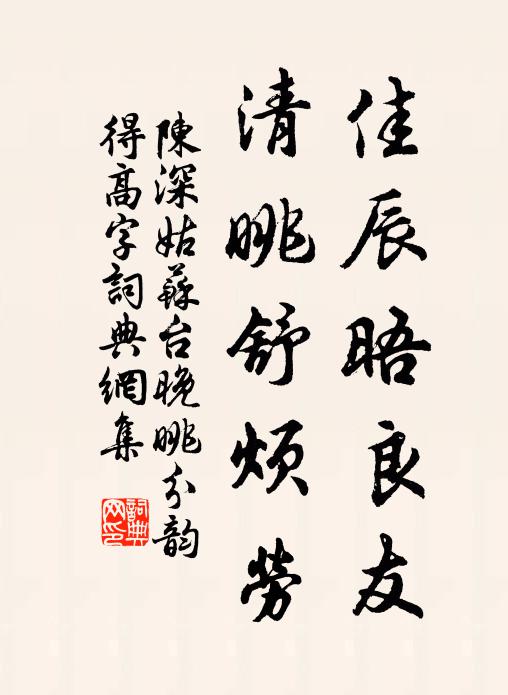 佳辰晤良友
清眺舒煩勞
陳深姑蘇台晚眺分韵
得高字詞典網集
詞典
网印